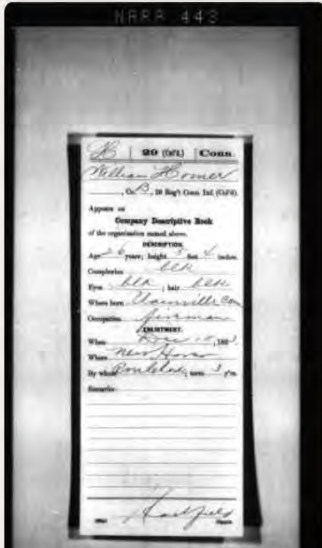 NARA 443
H | 29 (Col'd.) | Conn.
William Homer
, Co. B, 29 Reg't Conn. Inf. (Col'd).
Appears on
Company Descriptive Book
of the organization named above.
DESCRIPTION.
Age 26 years; height 5 feet 4 inches.
Complexion blk
Eyes blk; hair blk
Where born Conn
Occupation fireman
ENLISTMENT.
When 186
Where New Haven
By whom ; term 3 y'rs.
Remarks: